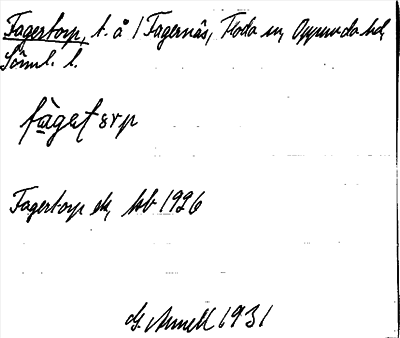 Fagertorp, t. å 1 Fagernäs, Floda sn, Oppunda hd,
Söml. l.
fàgeʈsrp
Fagertorp ek, hb 1926
G. Arnell 1931